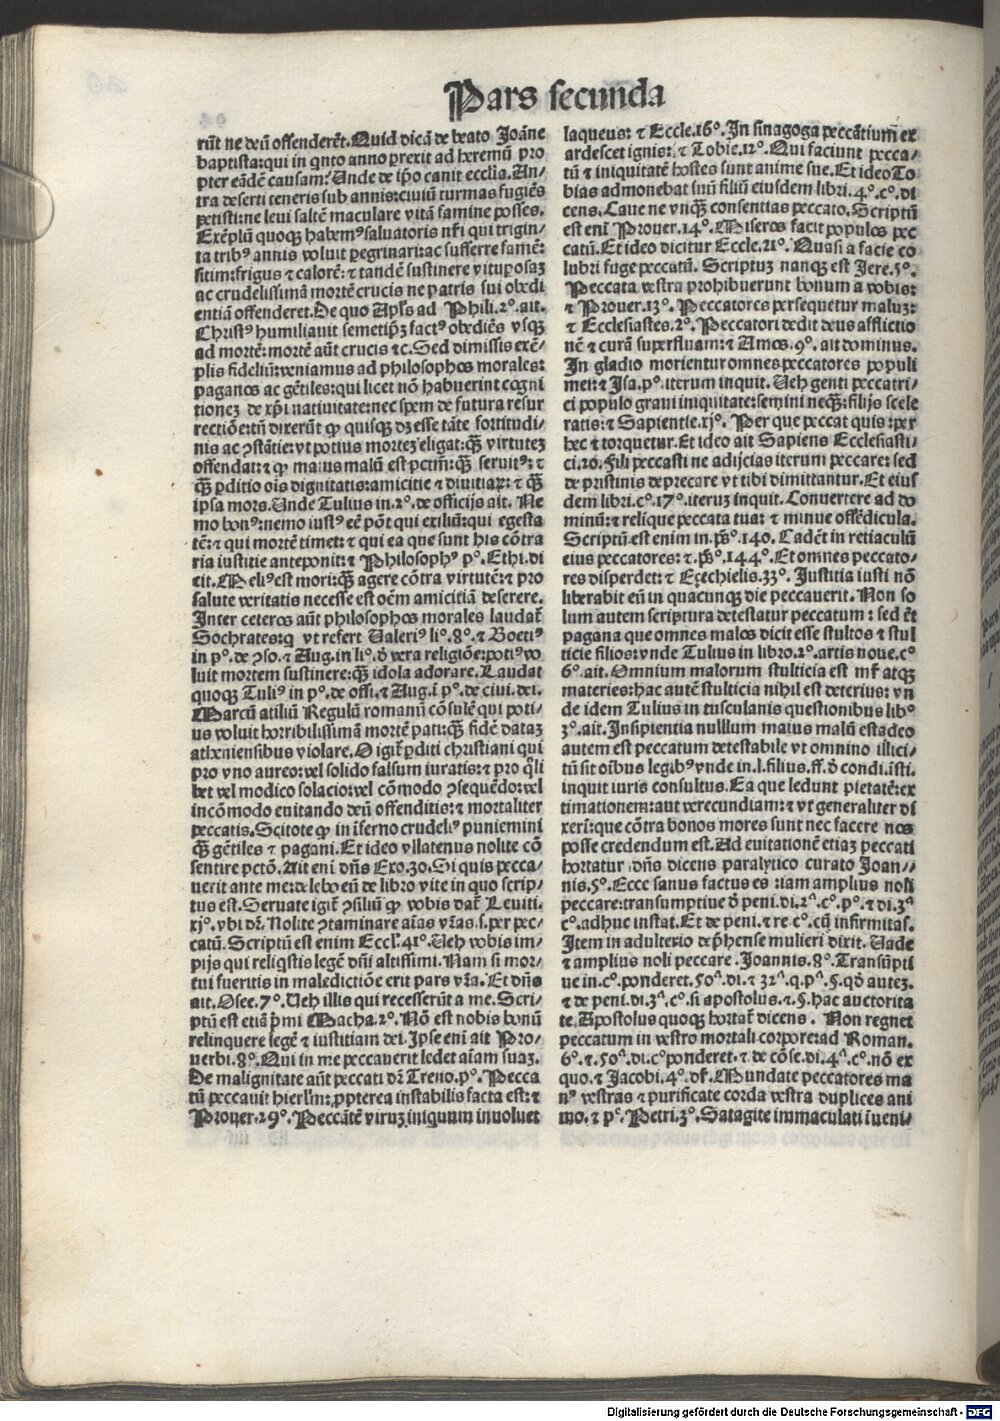 Pars secunda
rūt ne deū offenderēt. Quid dicā de beato Joāne
baptista: qui in qͥnto anno prexit ad heremū pro
pter eādē causam: Unde de ip̄o canit eccl̄ia. An⸗
tra deserti teneris sub annis: ciuiū turmas fugiēs
petisti: ne leui saltē maculare vitā famine posses.
Exēplū quoqꝫ habemꝰ saluatoris nr̄i qui trigin⸗
ta tribꝰ annis voluit pegrinari: ac sufferre famē:
sitim: frigus ⁊ calorē: ⁊ tandē sustinere vituꝑosaꝫ
ac crudelissimā mortē crucis ne patris sui obedi
entiā offenderet. De quo Apl̄s ad Phili. 2º. ait.
Christꝰ humiliauit semetip̄ꝫ factꝰ obediēs vsqꝫ
ad mortē: mortē aūt crucis ⁊c. Sed dimissis exē⸗
plis fideliū: veniamus ad philosophos morales:
paganos ac gētiles: qui licet nō habuerint cogni
tioneꝫ de xp̄i natiuitate: nec spem de futura resur
rectiōe: tn̄ dixerūt ꝙ quisqꝫ dꝫ esse tāte fortitudi⸗
nis ac ꝯstātie: vt potius morteꝫ eligat: qꝫ̄ virtuteꝫ
offendat: ⁊ ꝙ maius malū est pctm̄: qꝫ̄ seruitꝰ: ⁊
qꝫ̄ ꝑditio oīs dignitatis: amicitie ⁊ diuitiaꝝ: ⁊ qꝫ̄
ipsa mors. Unde Tulius in. 2º. de officijs ait. Ne
mo bonꝰ: nemo iustꝰ eē pōt qui exiliū: qui egesta
tē: ⁊ qui mortē timet: ⁊ qui ea que sunt his cōtra
ria iustitie anteponit: ⁊ Philosophꝰ pº. Ethi. di
cit. Meliꝰ est mori: qꝫ̄ agere cōtra virtutē: ⁊ pro
salute veritatis necesse est oēm amicitiā deserere.
Inter ceteros aūt philosophos morales laudat̄
Sochrates: q vt refert Ualeriꝰ liº. 8º. ⁊ Boetiꝰ
in pº. de ꝯso. ⁊ Aug. in liº. ō vera religiōe: potiꝰ vo
luit mortem sustinere: qꝫ̄ idola adorare. Laudat
quoqꝫ Tuliꝰ in pº. de offi. ⁊ Aug. ī pº. de ciui. dei.
Marcū atiliū Regulū romanū cōsulē qui poti⸗
us voluit horribilissimā mortē pati: qꝫ̄ fidē dataꝫ
atheniensibus violare. O igit̄ ꝑditi christiani qui
pro vno aureo: vel solido falsum iuratis: ⁊ pro qͣli
bet vel modico solacio: vel cōmodo ꝯsequēdo: vel
incōmodo euitando deū offenditis: ⁊ mortaliter
peccatis. Scitote ꝙ in īferno crudeliꝰ puniemini
qꝫ̄ gētiles ⁊ pagani. Et ideo vllatenus nolite cō
sentire pctō. Ait eni dn̄s Exo. 30. Si quis pecca⸗
uerit ante me: delebo eū de libro vite in quo scrip⸗
tus est. Seruate igit̄ ꝯsiliū ꝙ vobis dat̄ Leuiti.
xjº. vbi dr̄. Nolite ꝯtaminare aīas vr̄as. s. per pec⸗
catū. Scriptū est enim Eccl̄. 41º. Ueh vobis im⸗
pijs qui reliqͥstis legē dn̄i altissimi. Nam si mor⸗
tui fueritis in maledictiōe erit pars vr̄a. Et dn̄s
ait. Osee. 7º. Ueh illis qui recesserūt a me. Scri⸗
ptū est etiā pͥmi Macha. 2º. Nō est nobis bonū
relinquere legē ⁊ iustitiam dei. Ipse eni ait Pro⸗
uerbi. 8º. Qui in me peccauerit ledet aīam suaꝫ.
De malignitate aūt peccati dr̄ Treno. pº. Pecca
tū peccauit hierl̄m: ꝓpterea instabilis facta est: ⁊
Prouer. 29º. Peccātē viruꝫ iniquum inuoluet
laqueus: ⁊ Eccle. 16º. In sinagoga peccātium̄ ex
ardescet ignis: ⁊ Tobie. 12º. Qui faciunt pecca⸗
tū ⁊ iniquitatē hostes sunt anime sue. Et ideo To
bias admonebat suū filiū eiusdem libri. 4º. cº. di
cens. Caue ne vnqꝫ̄ consentias peccato. Scriptū
est eni Prouer. 14º. Miseros facit populos pec
catū. Et ideo dicitur Eccle. 21º. Quasi a facie co
lubri fuge peccatū. Scriptuꝫ nanqꝫ est Jere. 5º.
Peccata vestra prohibuerunt bonum a vobis:
⁊ Prouer. 13º. Peccatores persequetur maluꝫ:
⁊ Ecclesiastes. 2º. Peccatori dedit deus afflictio
nē ⁊ curā superfluam: ⁊ Amos. 9º. ait dominus.
In gladio morientur omnes peccatores populi
mei: ⁊ Isa. pº. iterum inquit. Ueh genti peccatri⸗
ci populo graui iniquitate: semini neqꝫ̄: filijs scele
ratis: ⁊ Sapientie. xjº. Per que peccat quis: per
hec ⁊ torquetur. Et ideo ait Sapiens Ecclesiasti⸗
ci. 20. Fili peccasti ne adijcias iterum peccare: sed
de pristinis deprecare vt tibi dimittantur. Et eius
dem libri. cº. 17º. iteruꝫ inquit. Conuertere ad do
minū: ⁊ relique peccata tua: ⁊ minue offēdicula.
Scriptū est enim in. ps̄º. 140. Cadēt in retiaculū
eius peccatores: ⁊. ps̄º. 144º. Et omnes peccato⸗
res disperdet: ⁊ Ezechielis. 33º. Justitia iusti nō
liberabit eū in quacunqꝫ die peccauerit. Non so
lum autem scriptura detestatur peccatum: sed ēt
pagana que omnes malos dicit esse stultos ⁊ stul
ticie filios: vnde Tulius in libro. 2º. artis noue. cº
6º. ait. Omnium malorum stulticia est mr̄ atqꝫ
materies: hac autē stulticia nihil est deterius: vn
de idem Tulius in tusculanis questionibus libº
3º. ait. Insipientia nulllum maius malū est adeo
autem est peccatum detestabile vt omnino illici⸗
tū sit oībus legibꝰ vnde in. l. filius. ff. ō condi. īsti.
inquit iuris consultus. Ea que ledunt pietatē: ex
timationem: aut verecundiam: ⁊ vt generaliter di
xeri: que cōtra bonos mores sunt nec facere nos
posse credendum est. Ad euitationē etiaꝫ peccati
hortatur dn̄s dicens paralytico curato Joan⸗
nis. 5º. Ecce sanus factus es: iam amplius noli
peccare: transumptiue ō peni. di. 2ª. cº. pº. ⁊ di. 3ª
cº. adhuc instat. Et de peni. ⁊ re. cº. cū infirmitas.
Item in adulterio dep̄hense mulieri dixit. Uade
⁊ amplius noli peccare. Joannis. 8º. Transūpti
ue in. cº. ponderet. 50ª. di. ⁊ 32ª. q. pª. §. qō auteꝫ.
⁊ de peni. di. 3ª. cº. si apostolus. ⁊. §. hac auctorita
te. Apostolus quoqꝫ hortat̄ dicens. Non regnet
peccatum in vestro mortali corpore: ad Roman.
6º. ⁊. 50ª. di. cº ponderet. ⁊. de cōse. di. 4ª. cº. nō ex
quo. ⁊ Jacobi. 4º. dr̄. Mundate peccatores ma
nꝰ vestras ⁊ purificate corda vestra duplices ani
mo. ⁊ pͤ. Petri. 3º. Satagite immaculati iueni⸗
Digitalisierung gefördert durch die Deutsche Forschungsgemeinschaft - DFG